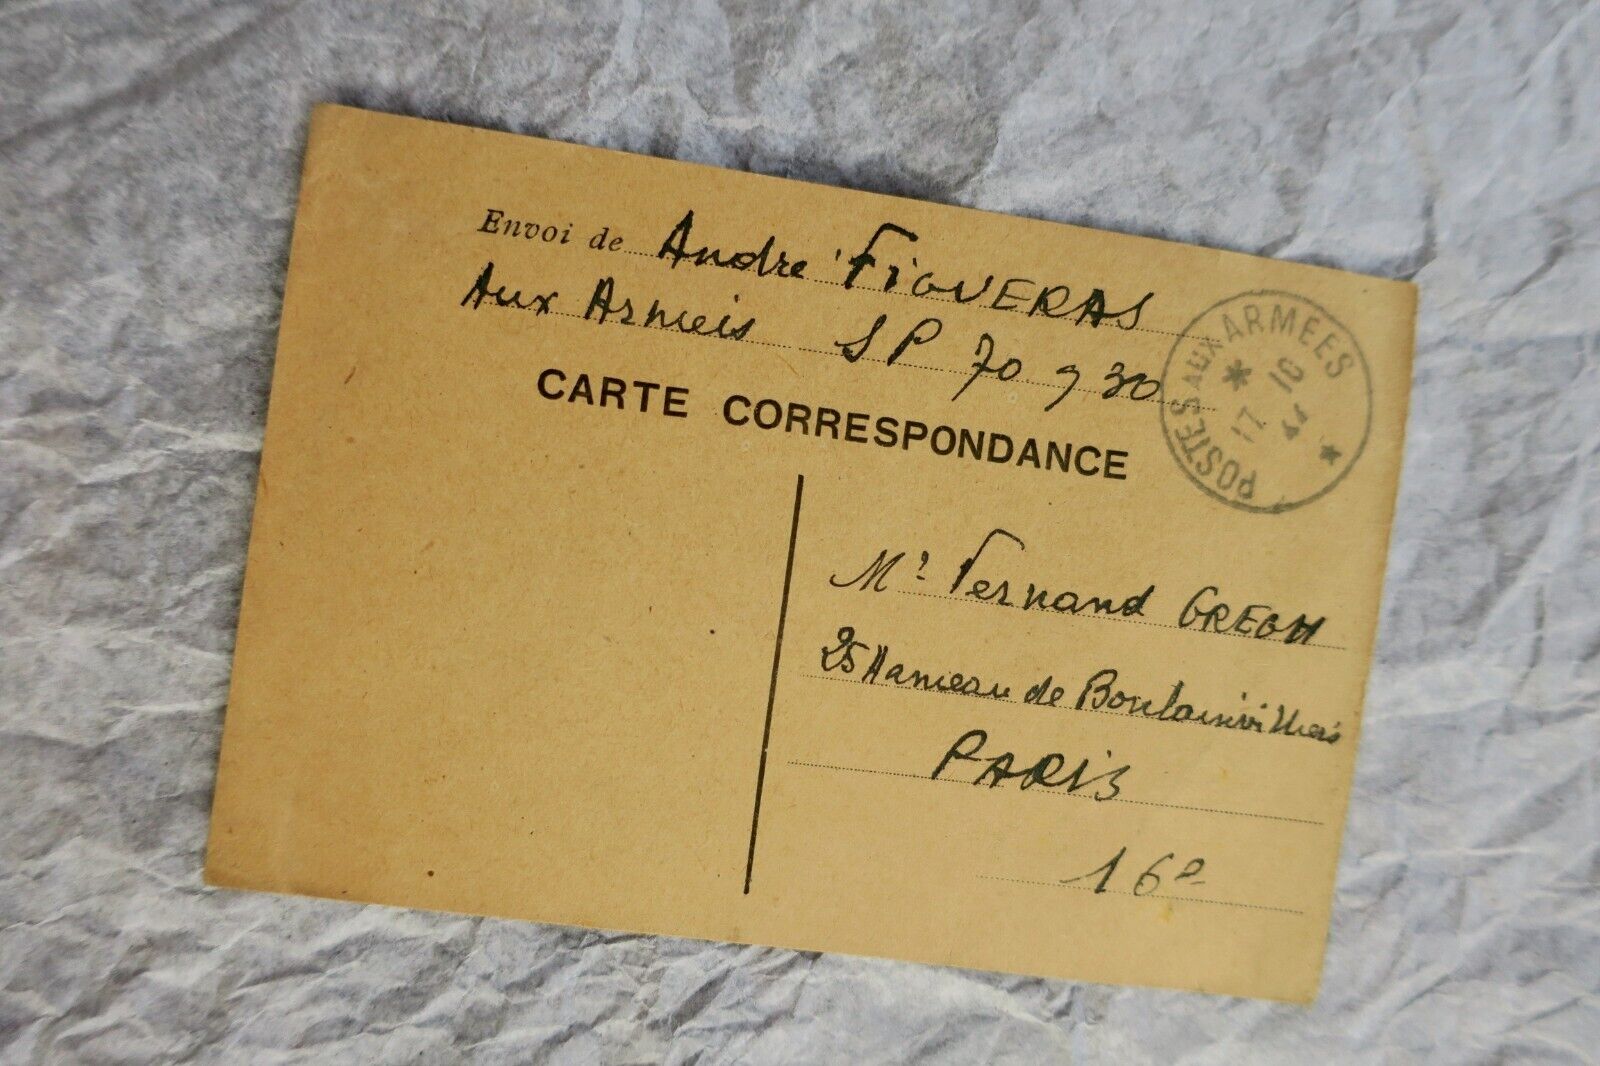 Envoi de Andre FIGUERAS
Aux Armeis SP 70 930
CARTE CORRESPONDANCE
POSTES AUX ARMEES
* 17 10 44 *
Mr Fernand GREGH
25 Hameau de Boulainvilliers
PARIS
16e